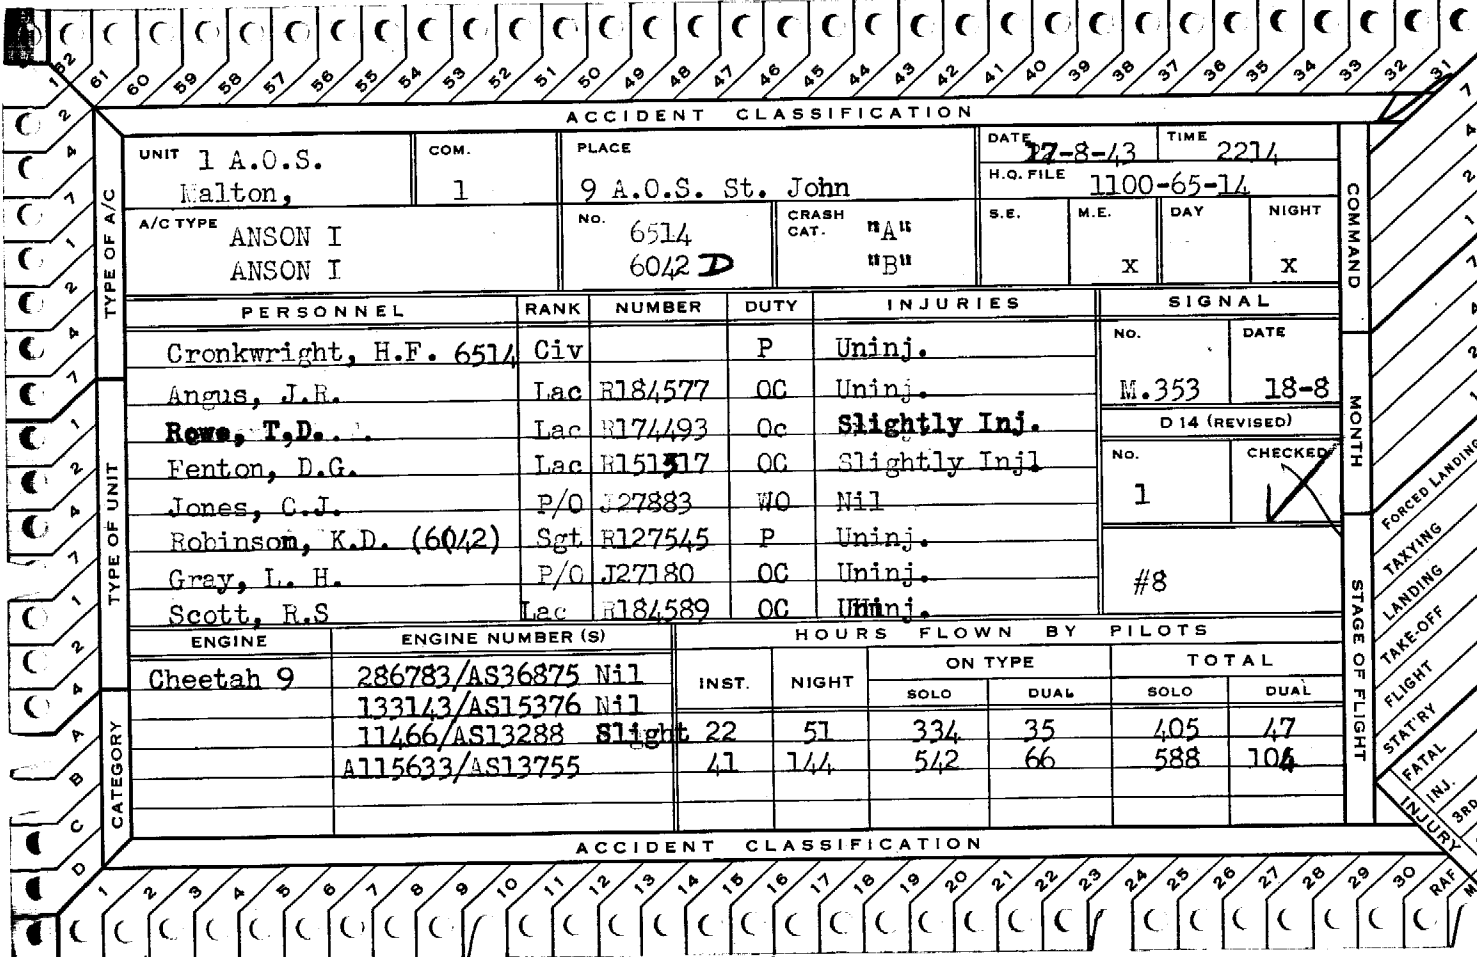 62 61 60 59 58 57 56 55 54 53 52 51 50 49 48 47 46 45 44 43 42 41 40 39 38 37 36 35 34 33 32 31
ACCIDENT CLASSIFICATION
UNIT 1 A.O.S.
Malton,
COM.
1
PLACE
9 A.O.S. St. John
DATE 17-8-43
TIME 2214
H.Q. FILE 1100-65-14
A/C TYPE ANSON I
ANSON I
NO. 6514
6042 D
CRASH CAT. "A"
"B"
S.E. M.E. DAY NIGHT
x x
PERSONNEL RANK NUMBER DUTY INJURIES
Cronkwright, H.F. 6514 Civ P Uninj.
Angus, J.R. Lac R184577 OC Uninj.
Rowe, T,D. Lac R174493 Oc Slightly Inj.
Fenton, D.G. Lac R151517 OC Slightly Injl
Jones, C.J. P/O J27883 WO Nil
Robinson, K.D. (6042) Sgt R127545 P Uninj.
Gray, L. H. P/O J27180 OC Uninj.
Scott, R.S Lac R184589 OC Uninj.
SIGNAL
NO. DATE
M.353 18-8
D 14 (REVISED)
NO. CHECKED
1
#8
ENGINE ENGINE NUMBER (S)
Cheetah 9 286783/AS36875 Nil
133143/AS15376 Nil
11466/AS13288 Slight
A115633/AS13755
HOURS FLOWN BY PILOTS
INST. NIGHT ON TYPE TOTAL
SOLO DUAL SOLO DUAL
22 51 334 35 405 47
41 144 542 66 588 104
ACCIDENT CLASSIFICATION
TYPE OF A/C
TYPE OF UNIT
CATEGORY
COMMAND
MONTH
STAGE OF FLIGHT
1 2 4 7 1 2 4 7 1 2 4 7 1 2 4 A B C D
7 4 2 1 7 4 2 1
FORCED LANDING
TAXYING
LANDING
TAKE-OFF
FLIGHT
STAT'RY
FATAL
INJ.
3RD
INJURY
RAF
1 2 3 4 5 6 7 8 9 10 11 12 13 14 15 16 17 18 19 20 21 22 23 24 25 26 27 28 29 30